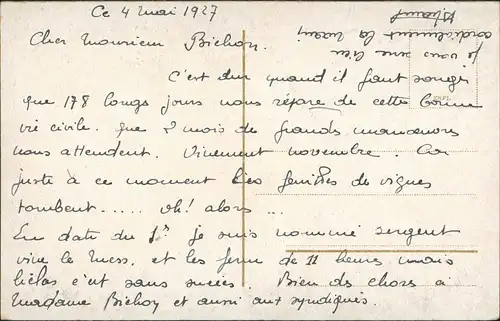 Ce 4 mai 1927
Cher Monsieur Bichon.
C'est dur quand il faut songer
que 178 longs jours nous sépare de cette bonne
vie civile. que 2 mois de grandes manœuvres
nous attendent. Vivement novembre. Car
juste à ce moment les feuilles de vignes
tombent ..... oh! alors ...
En date du 1er je suis nommé sergent
vive le mess. et les perm de 11 heures mais
hélas c'est sans succès. Bien des choses à
Madame Bichon et aussi aux syndiqués.
Je vous serre bien
cordialement la main